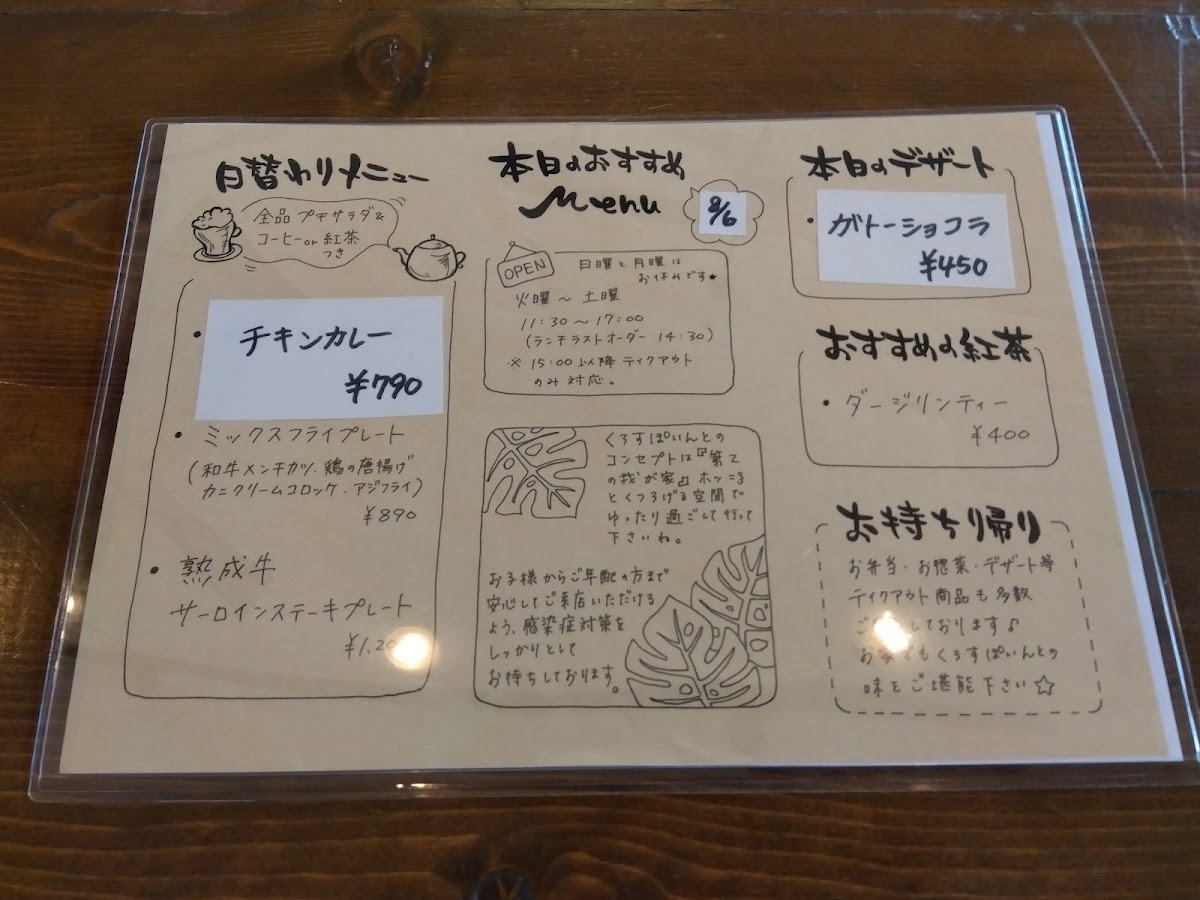 日替わりメニュー
全品プチサラダ&
コーヒー or 紅茶
つき
・チキンカレー
¥790
・ミックスフライプレート
(和牛メンチカツ、鶏の唐揚げ
カニクリームコロッケ・アジフライ)
¥890
・熟成牛
サーロインステーキプレート
本日のおすすめ
Menu
8/6
OPEN
日曜と月曜は
お休みです★
火曜〜土曜
11:30〜17:00
(ランチラストオーダー 14:30)
※ 15:00以降テイクアウト
のみ対応。
くろすぽいんとの
コンセプトは『第2
の我が家』ホッこる
とくつろげる空間で
ゆったり過ごして行って
下さいね。
お子様からご年配の方まで
安心してご来店いただける
よう、感染症対策を
しっかりとして
お待ちしております。
本日のデザート
・ガトーショコラ
¥450
おすすめの紅茶
・ダージリンティー
¥400
お持ち帰り
お弁当・お惣菜・デザート等
テイクアウト商品も多数
しております♪
お家でもくろすぽいんとの
味をご堪能下さい☆